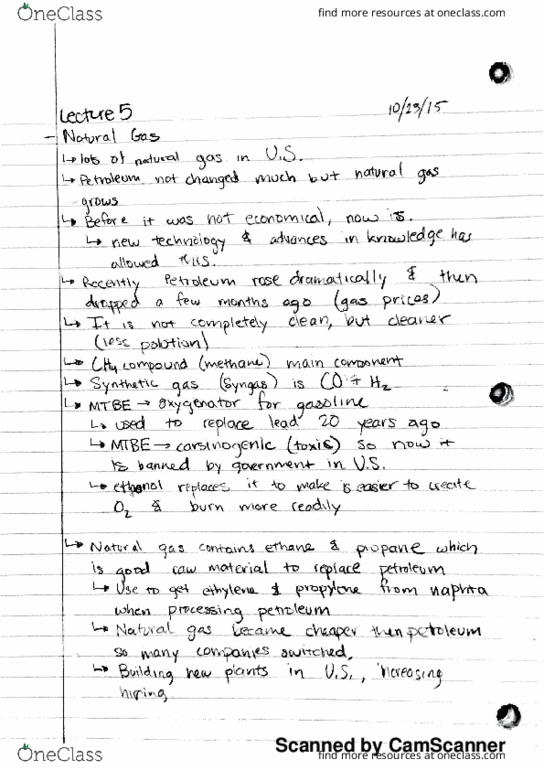 OneClass
find more resources at oneclass.com
Lecture 5
10/23/15
- Natural Gas
↳ lots of natural gas in U.S.
↳ Petroleum not changed much but natural gas
grows
↳ Before it was not economical, now is.
↳ new technology & advances in knowledge has
allowed this.
↳ Recently Petroleum rose dramatically & then
dropped a few months ago (gas prices)
↳ It is not completely clean, but cleaner
(less polution)
↳ CH4 compound (methane) main component
↳ Synthetic gas (syngas) is CO + H2
↳ MTBE → oxygenator for gasoline
↳ used to replace lead 20 years ago
↳ MTBE → carsinogenic (toxic) so now it
is banned by government in U.S.
↳ ethanol replaces it to make is easier to create
O2 & burn more readily
↳ Natural gas contains ethane & propane which
is good raw material to replace petroleum
↳ Use to get ethylene & propylene from naphta
when processing petroleum
↳ Natural gas became cheaper then petroleum
so many companies switched.
↳ Building new plants in U.S., increasing
hiring
Scanned by CamScanner
OneClass
find more resources at oneclass.com